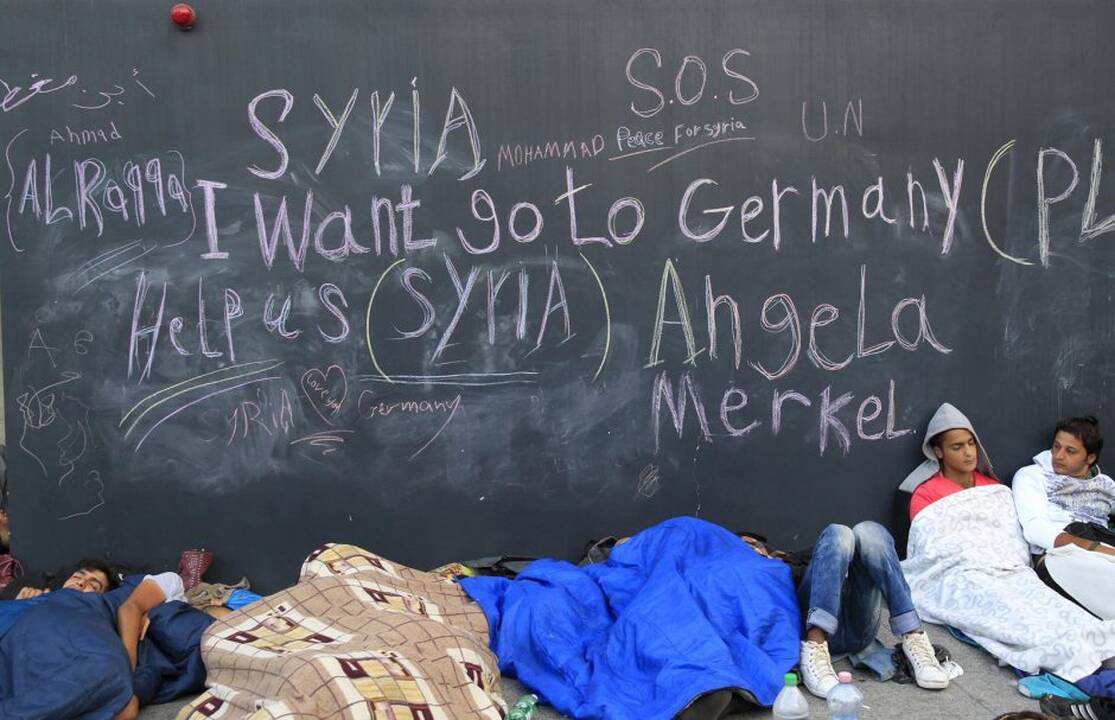 S.O.S
أيمن
SyriA
U.N
Ahmad
MOHAMMAD
Peace For syria
ALRaqqa
I want go to Germany (PL
Help us (SyriA) AngeLa
MerkeL
Love you
SyRiA Germany
A 6
3